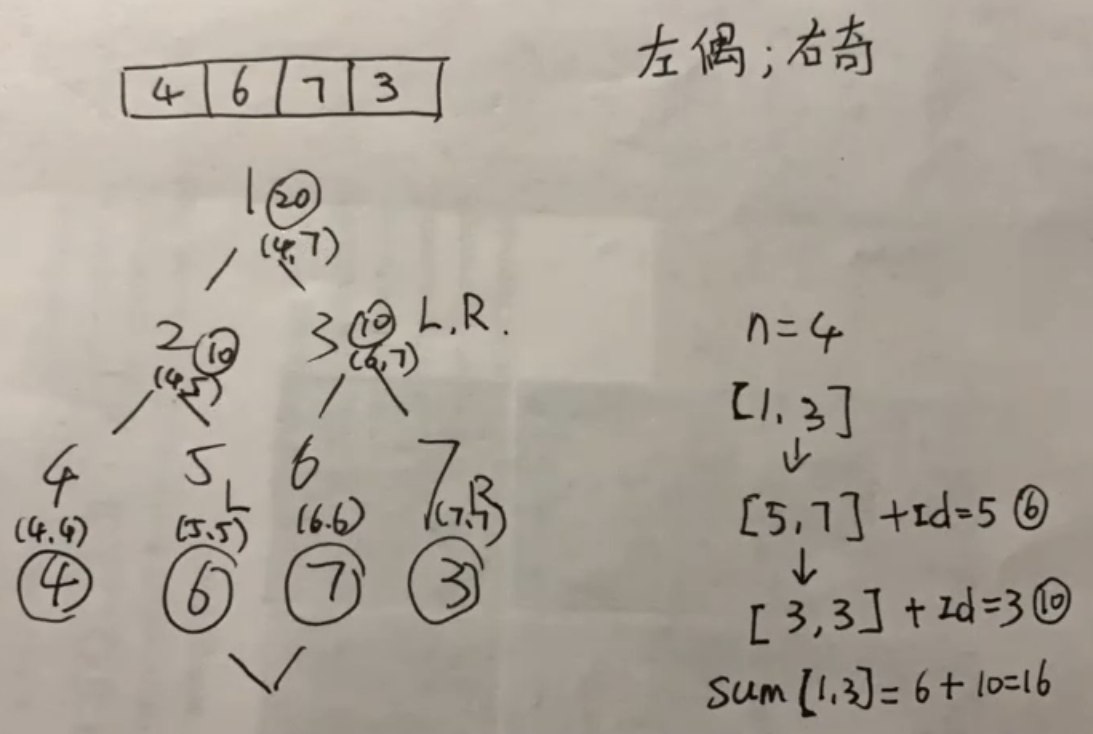 左偶；右奇
4 6 7 3
1 20
(4,7)
2 10 3 10 L,R.
(4,5) (6,7)
4 5 L 6 7 R
(4,4) (5,5) (6,6) (7,7)
4 6 7 3
n=4
[1,3]
↓
[5,7] +Id=5 ⑥
↓
[3,3] +Id=3 ⑩
sum[1,3]=6+10=16